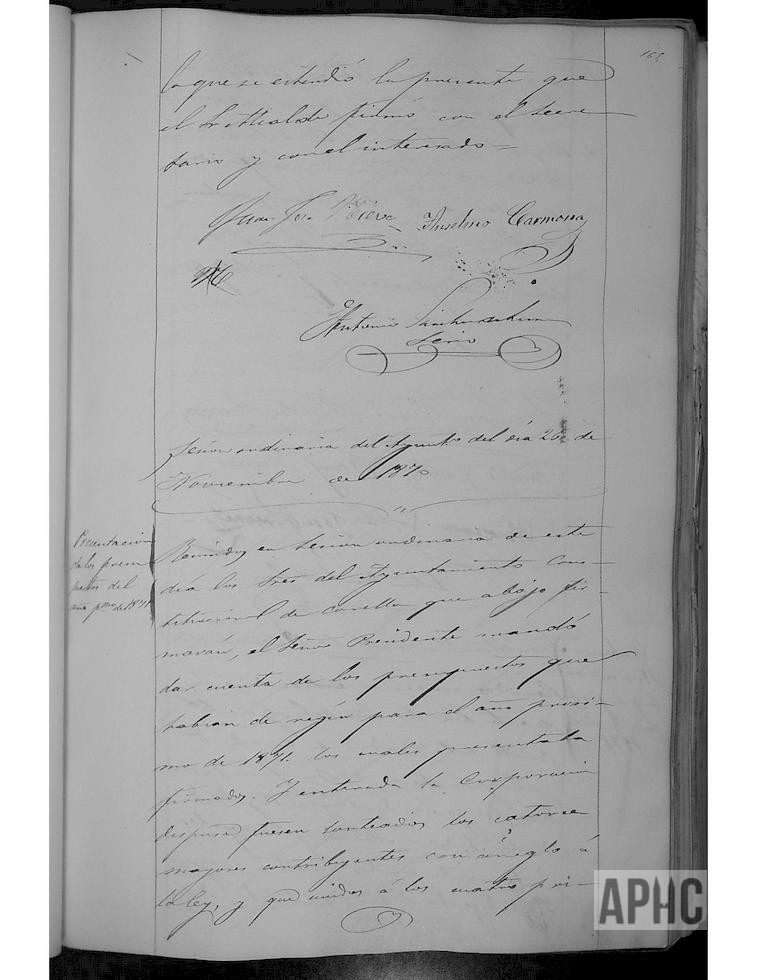 lo que se estendió la presente que
el Sr Alcalde firmó con el Secre
tario y con el interesado =
Juan José Anselmo Carmona
Antonio
Srio
Sesion ordinaria del Aynto del dia 26 de
Noviembre de 1870
Presentacion
de los presu
puestos del
año pmo de 1871
Reunidos en Sesion ordinaria de este
dia los Sres del Ayuntamiento Cons-
titucional de que abajo fir-
marán, el Señor Presidente mandó
dar cuenta de los presupuestos que
habian de regir para el año procsi-
mo de 1871. los cuales presentaba
firmados. Y enterada la Corporacion
dispuso fuesen sorteados los catorce
mayores contribuyentes con arreglo á
la ley, y que unidos á los cuatro pri-
APHC